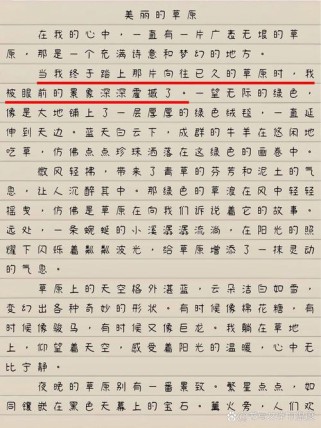 美丽的草原
在我的心中，一直有一片广袤无垠的草
原，那是一个充满诗意和梦幻的地方。
当我终于踏上那片向往已久的草原时，我
被眼前的景象深深震撼了。一望无际的绿色，
像是大地铺上了一层厚厚的绿色绒毯，一直延
伸到天边。蓝天白云下，成群的牛羊在悠闲地
吃草，仿佛点点珍珠洒落在这绿色的画卷中。
微风轻拂，带来了青草的芬芳和泥土的气
息，让人沉醉其中。那绿色的草浪在风中轻轻
摇曳，仿佛是草原在向我们诉说着它的故事。
远处，一条蜿蜒的小溪潺潺流淌，在阳光的照
耀下闪烁着粼粼波光，给草原增添了一抹灵动
的气息。
草原上的天空格外湛蓝，云朵洁白如雪，
变幻出各种奇妙的形状。有时候像棉花糖，有
时候像骏马，有时候又像巨龙。我躺在草地
上，仰望着天空，感受着阳光的温暖，心中无
比宁静。
夜晚的草原别有一番景致。繁星点点，如
同镶嵌在黑色天幕上的宝石。篝火旁，人们欢